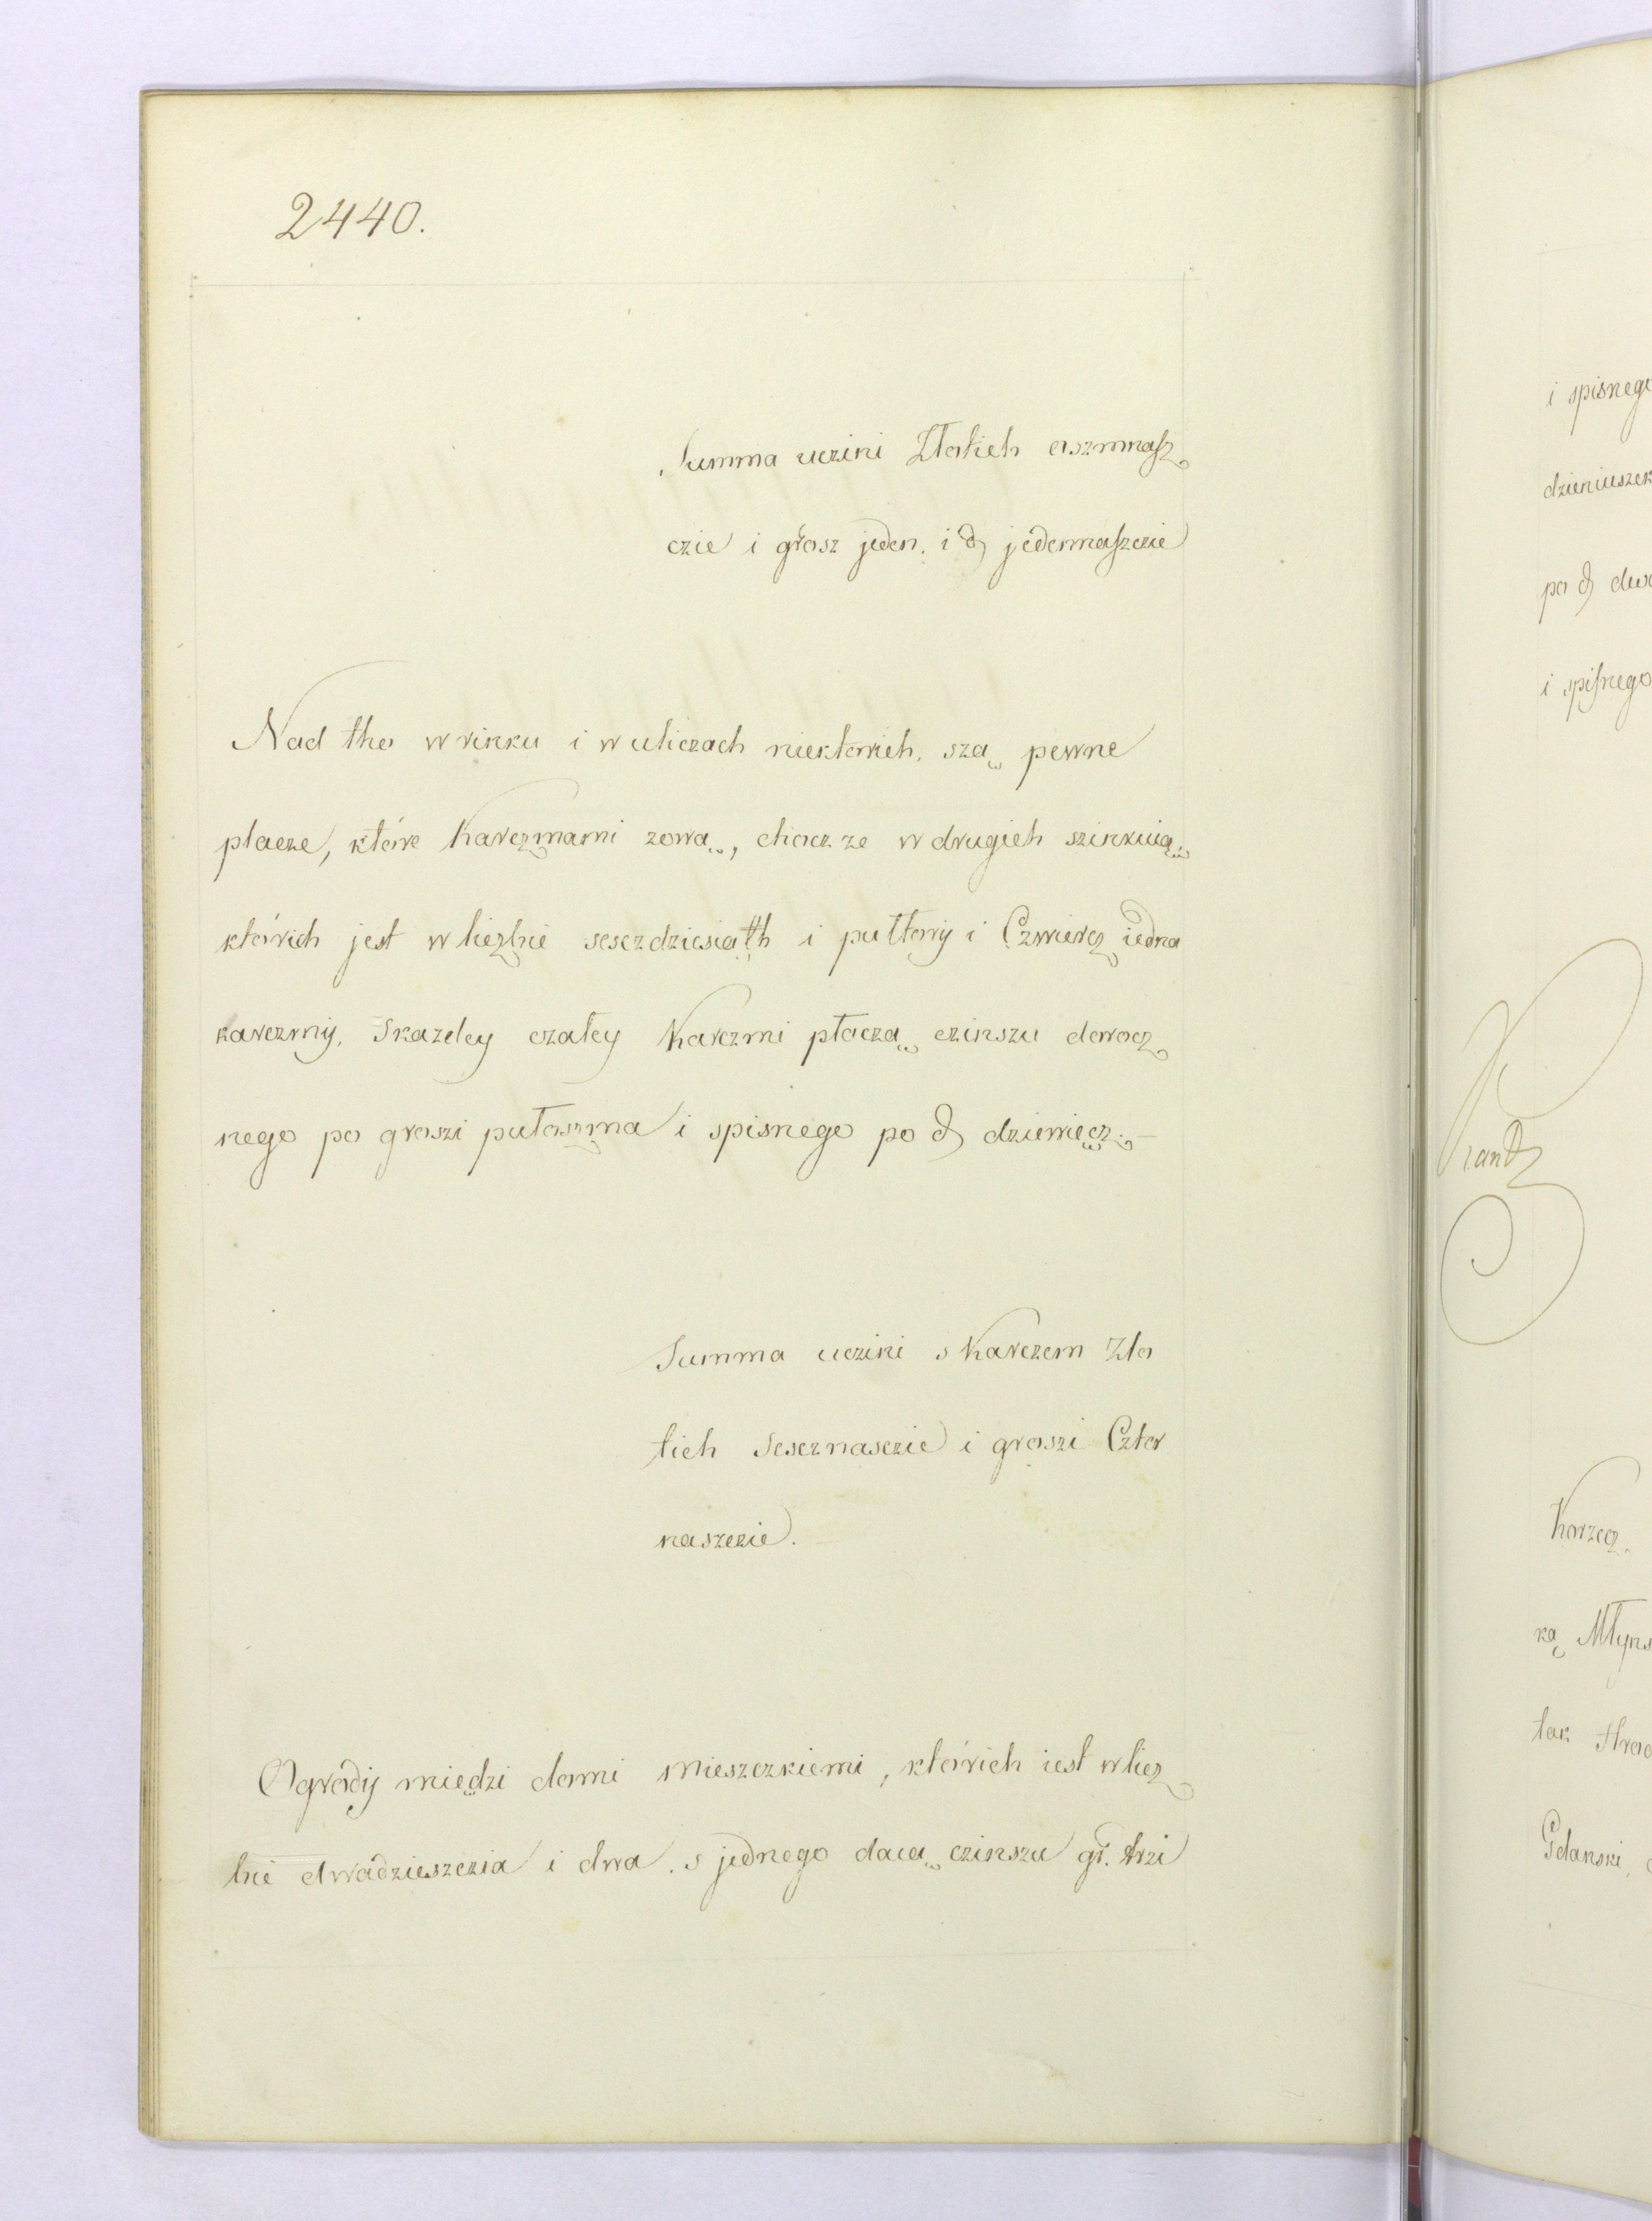 2440.
Summa uczini Złotich oszmnasz
czie i grosz jeden. i d jedennaszczie
Nad tho w rinku i w uliczach niektorich, szą pewne
place, które Karczmami zową, chocz ze w drugich szinkuią,
których jest w liczbie sesczdziesiąth i pułtory i Czwiercz iedna
karczmy. Skazdey czałey Karczmi płaczą czinszu dorocz
nego po groszi pułoszma i spisnego po d dziewięcz. —
Summa uczini s Karczem Zło
tich Sescznasczie i groszi Czter
naszczie.
Ogrody międzi domi Mieszczkiemi, którich iest w licz
bie dwadzieszczia i dwa. s jednego daią czinszu gr. trzi
i spisnego
po d
i spisnego
Korzecz
ką
tak
Gdanski,